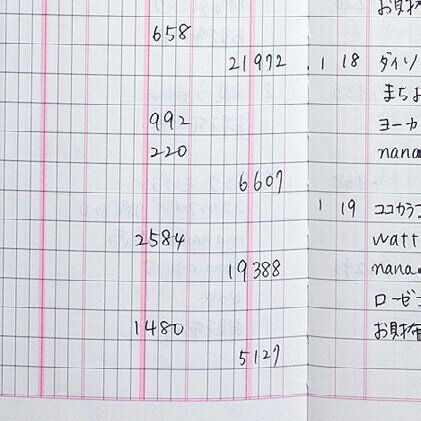 お財布
658
21972 1 18 ダイソ
まちよ
992 ヨーカ
220 nana
6607
1 19 ココカラ
2584 watt
19388 nana
ロービ
1480 お財布
5127